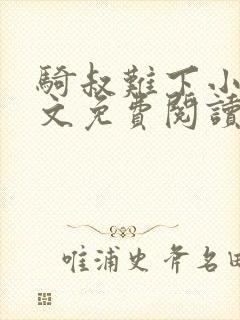 騎叔難下小
文免費閱讀
唯浦史斧名田